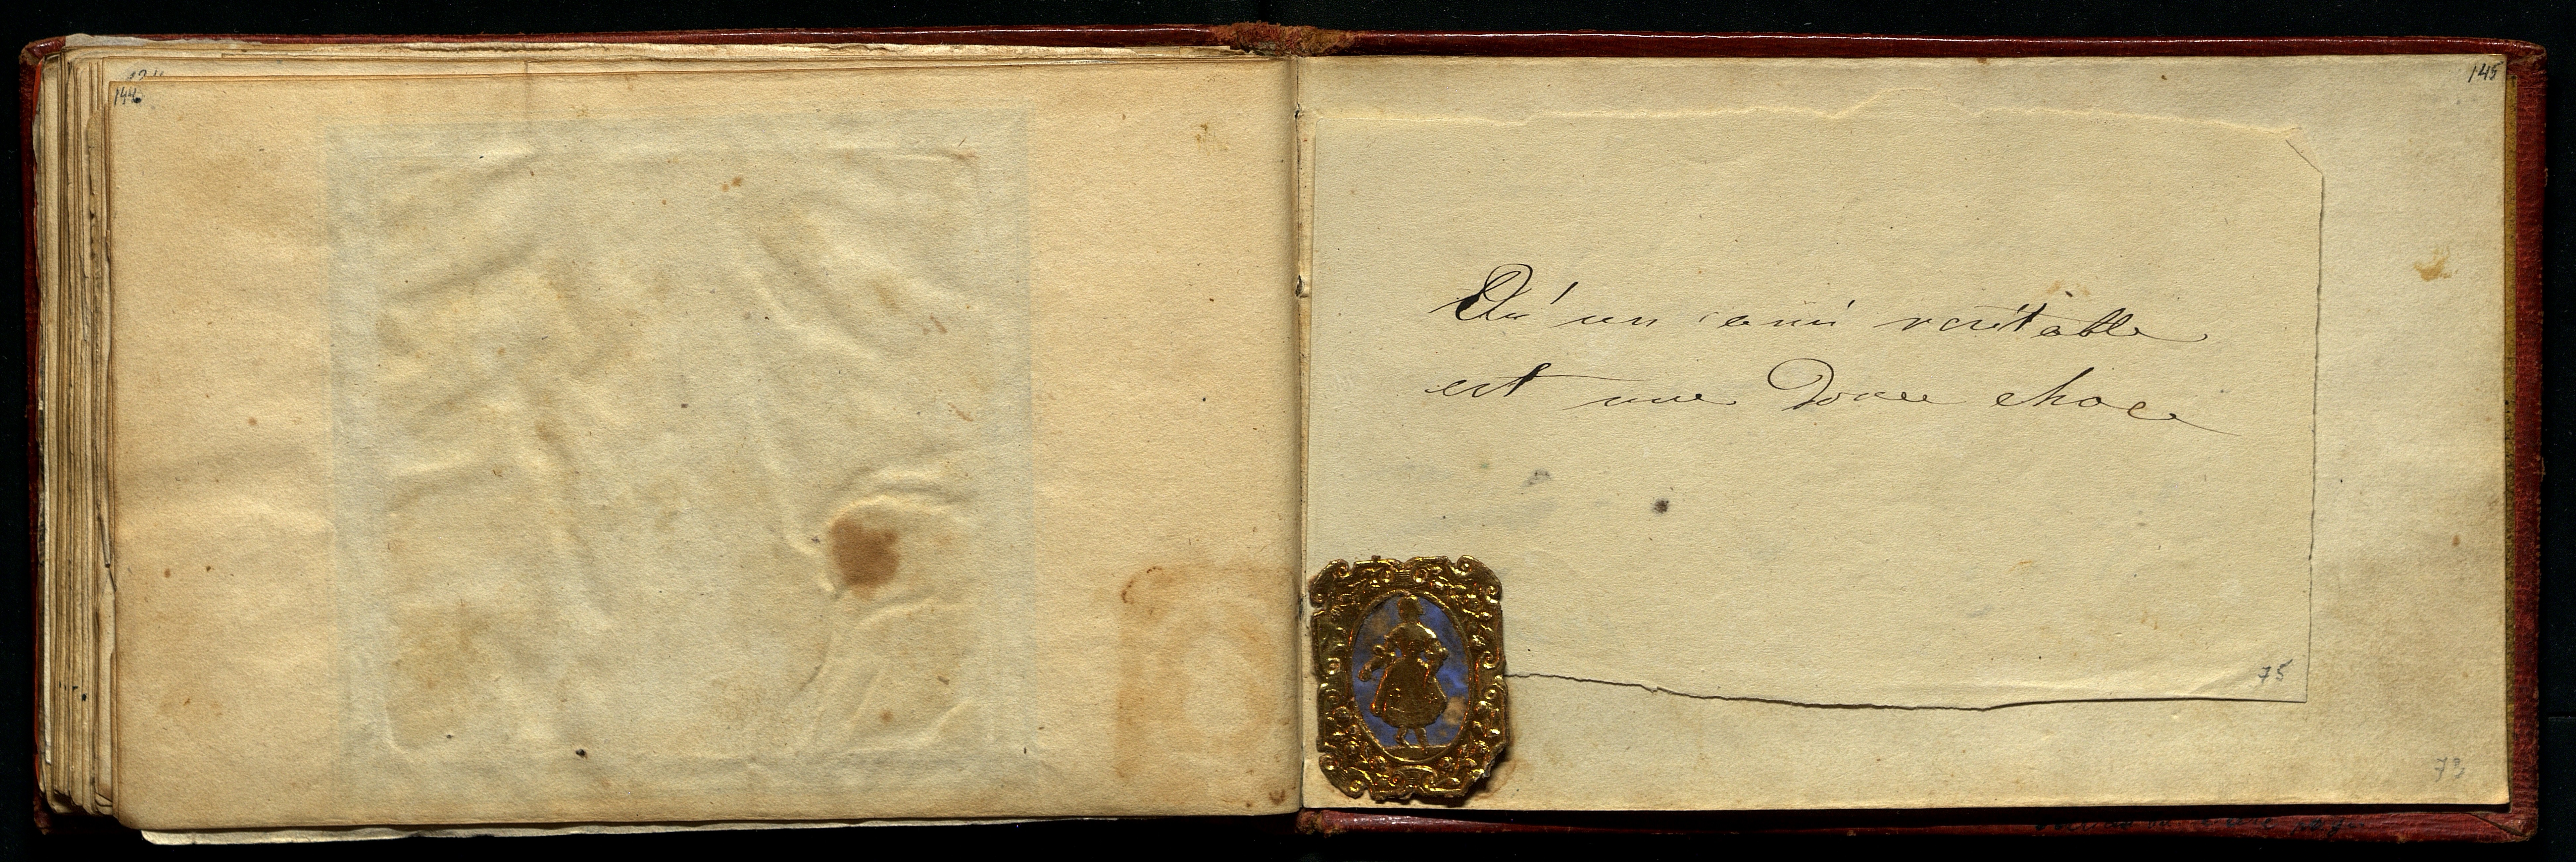 144
145
Qu'un ami veritable
est une Douce chose
75
73